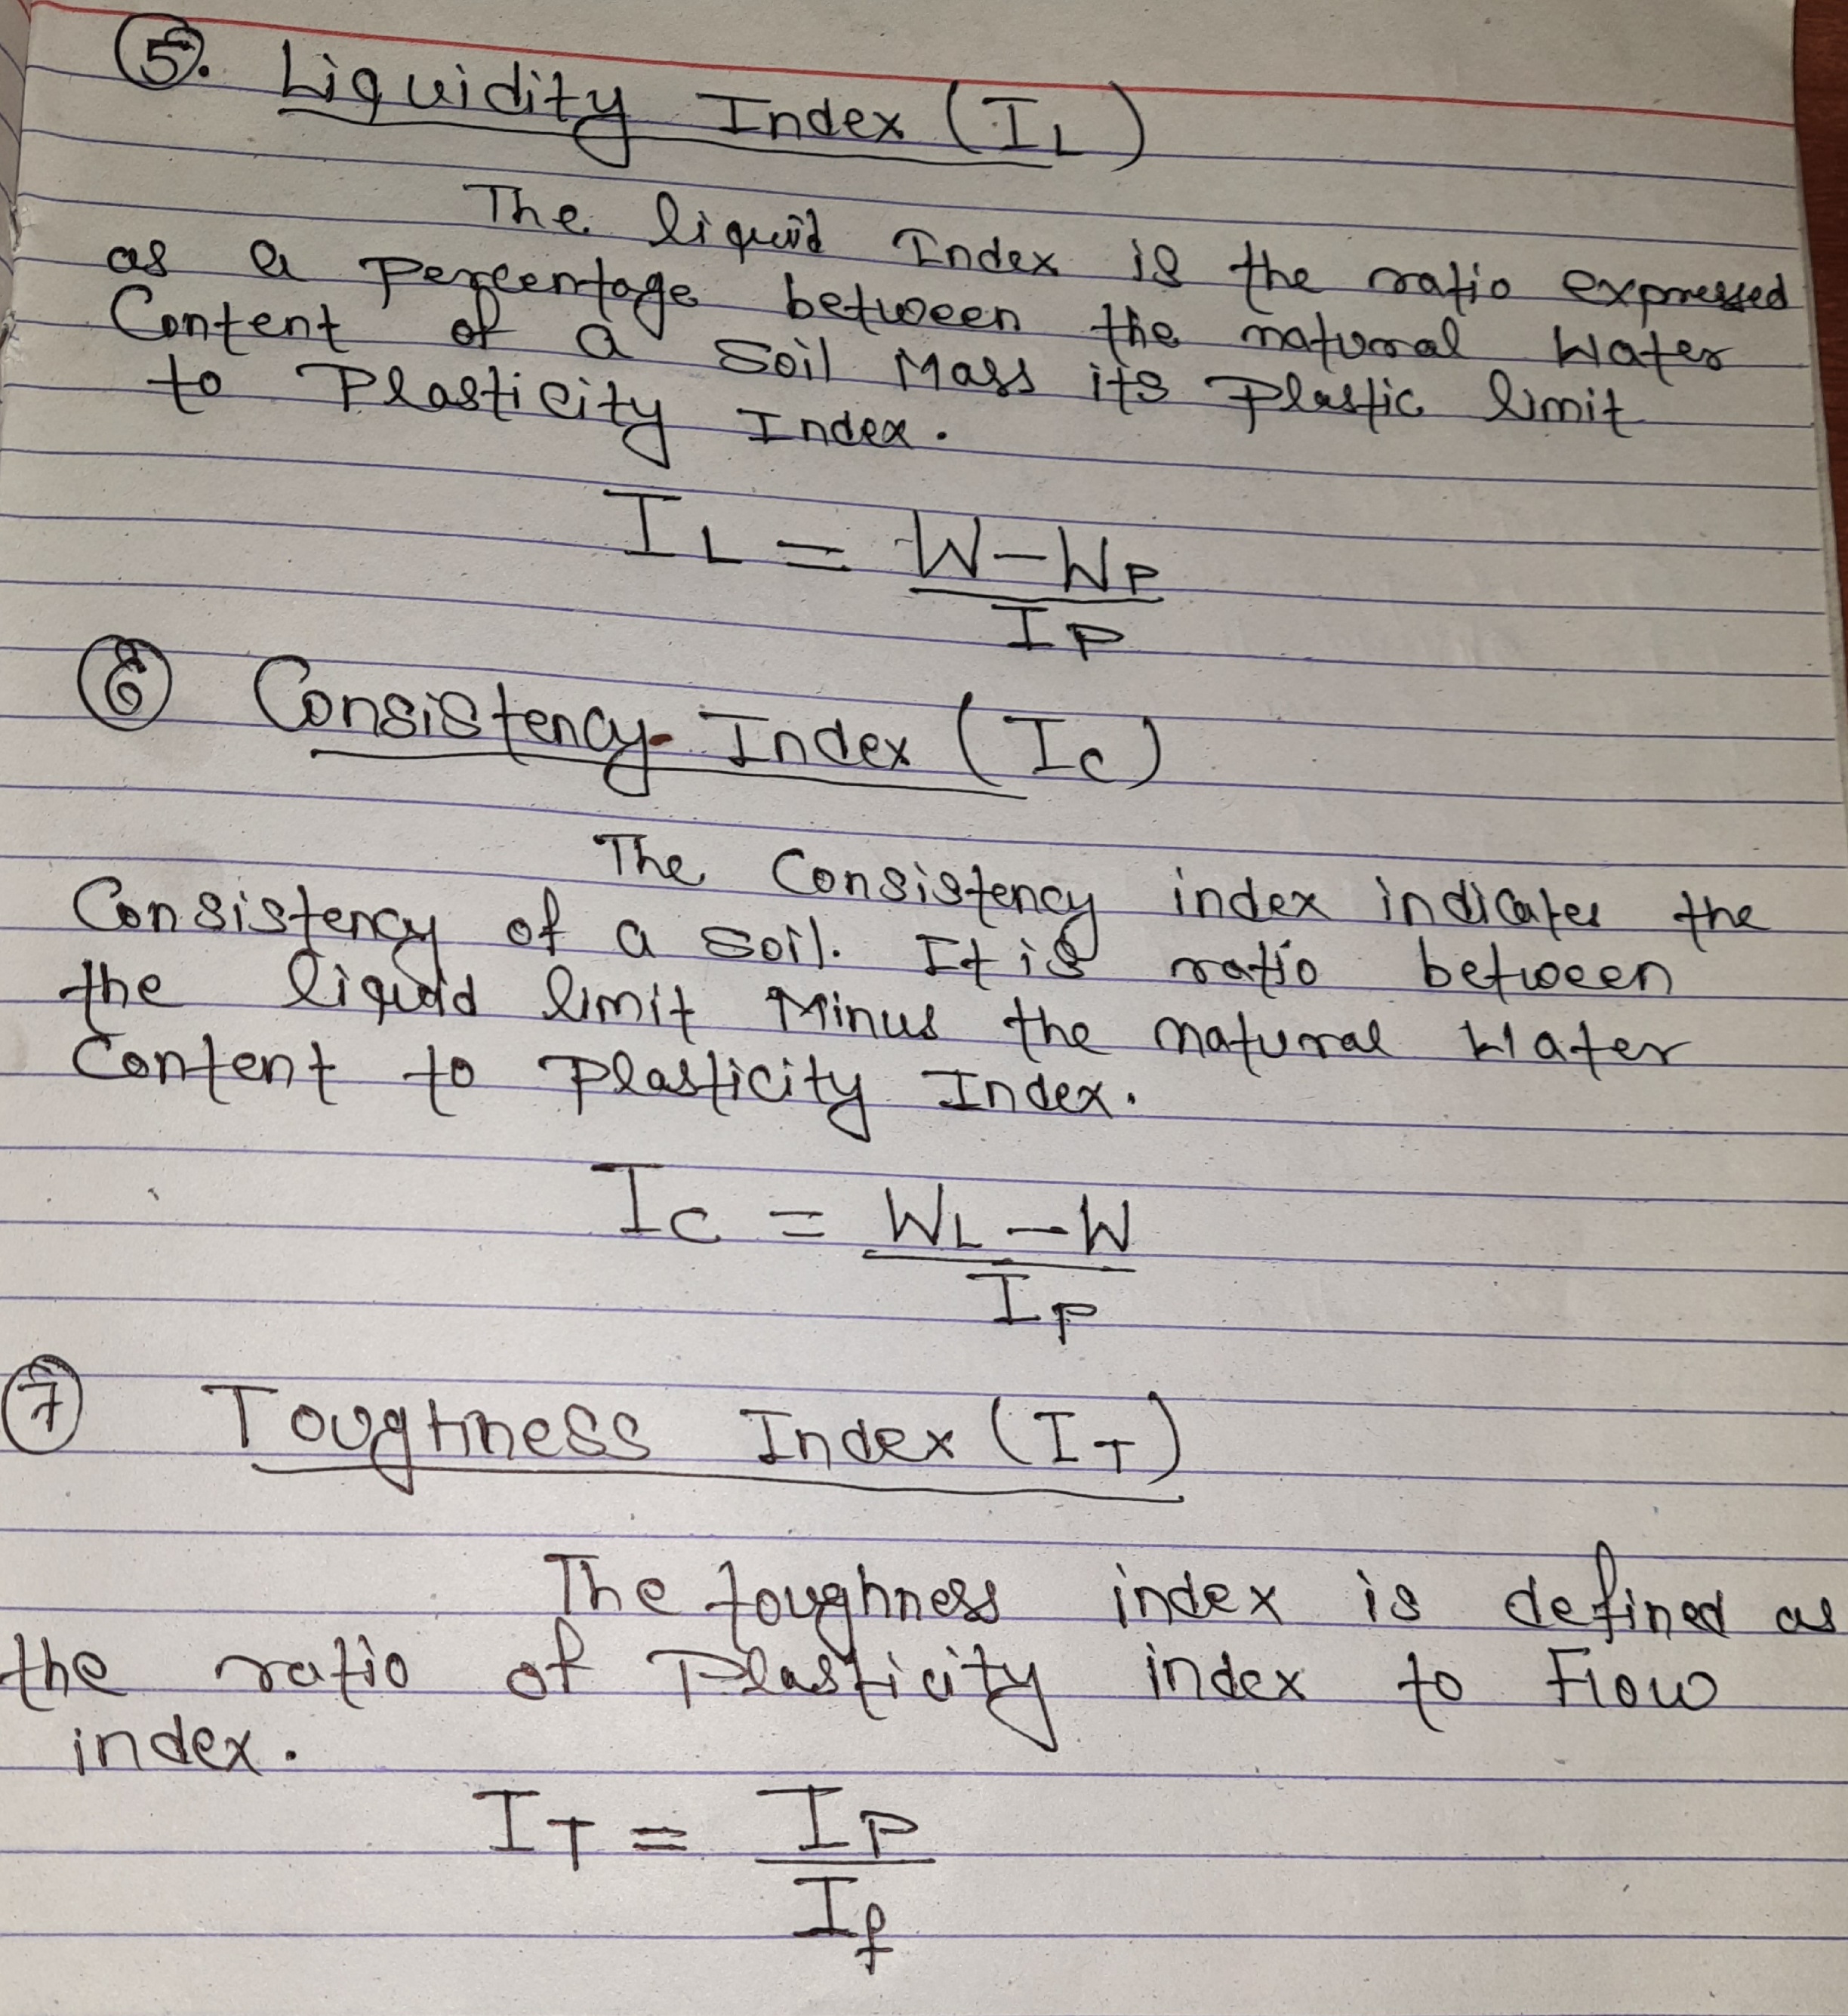 5. Liquidity Index (IL)
The liquid Index is the ratio expressed
as a percentage between the natural Water
Content of a soil Mass its Plastic limit
to Plasticity Index.
IL = W-WP
IP
6 Consistency Index (IC)
The Consistency index indicates the
Consistency of a soil. It is ratio between
the liquid limit Minus the natural Water
Content to Plasticity Index.
IC = WL-W
IP
7 Toughness Index (IT)
The toughness index is defined as
the ratio of Plasticity index to Flow
index.
IT = IP
If